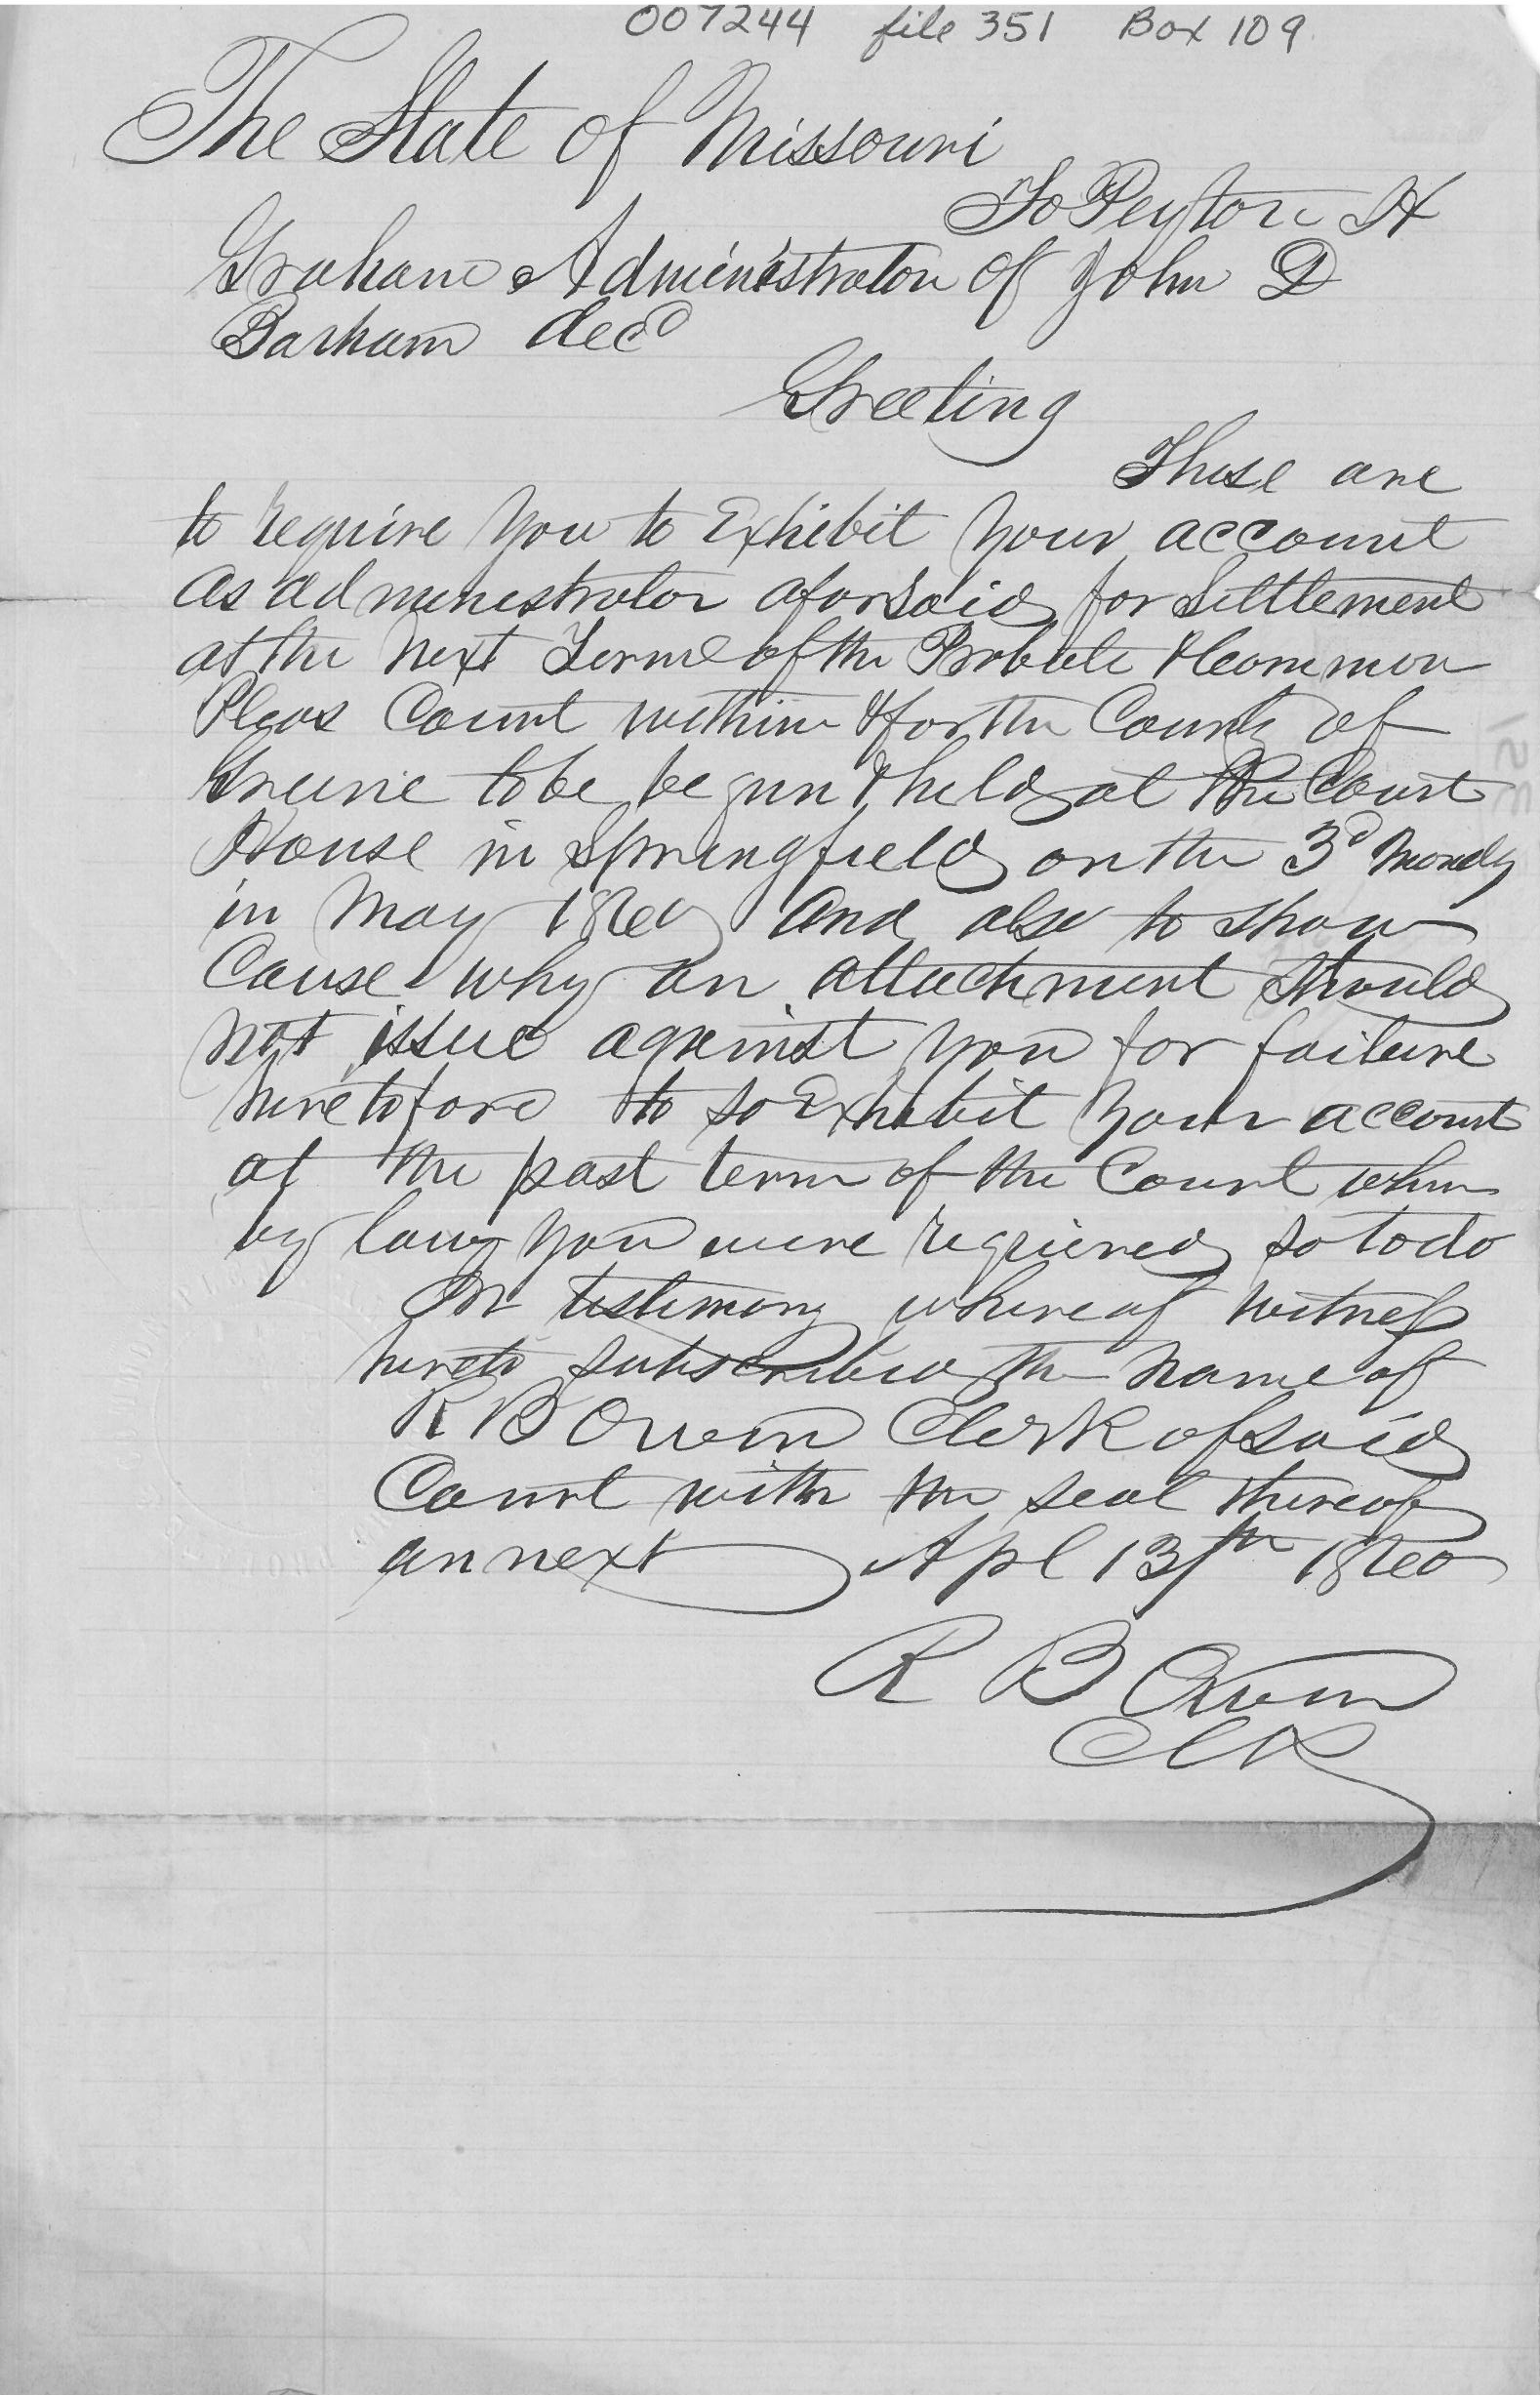 007244 file 351 Box 109
The State of Missouri
To Peyton H
Graham Administrator of John D
Barham decd
Greeting
These are
to require you to Exhibit your account
as administrator aforsaid for Settlement
at the next Terme of the Probate & Common
Pleas Court within & for the County of
Greene to be begun & held at the Court
House in Springfield on the 3d Mondy
in May 1860 and also to show
Cause why an attachment should
not issue against you for failure
heretofore to so Exhibit your account
at the past term of the Court when
by law you were required so to do
In testimony whereof witness
hereto subscribed the name of
R B Owen Clerk of said
Court with the seal thereof
annext Apl 13th 1860
R B Owen
Clk